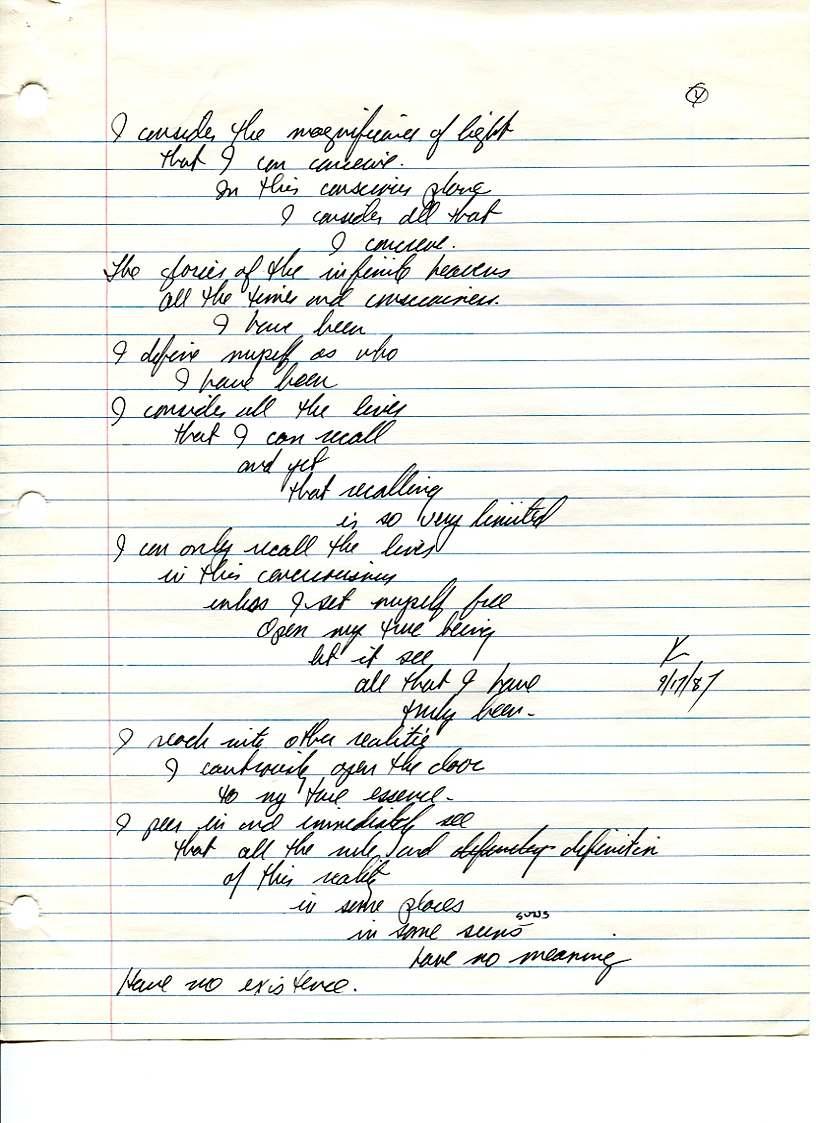 4
I consider the magnificence of light
that I can conceive.
In this conscious plane
I consider all that
I conceive.
The glories of the infinite heavens
all the times and consciousness.
I have been
I define myself as who
I have been
I consider all the lives
that I can recall
and yet
that recalling
is so very limited
I can only recall the lives
in this consciousness
unless I set myself free
Open my true being
let it see
all that I have
truly been.
K
9/17/87
I reach into other realities
I cautiously open the door
to my true essence.
I peer in and immediately see
that all the rules and definition
of this reality
in some places
suns
in some suns
have no meaning
Have no existence.